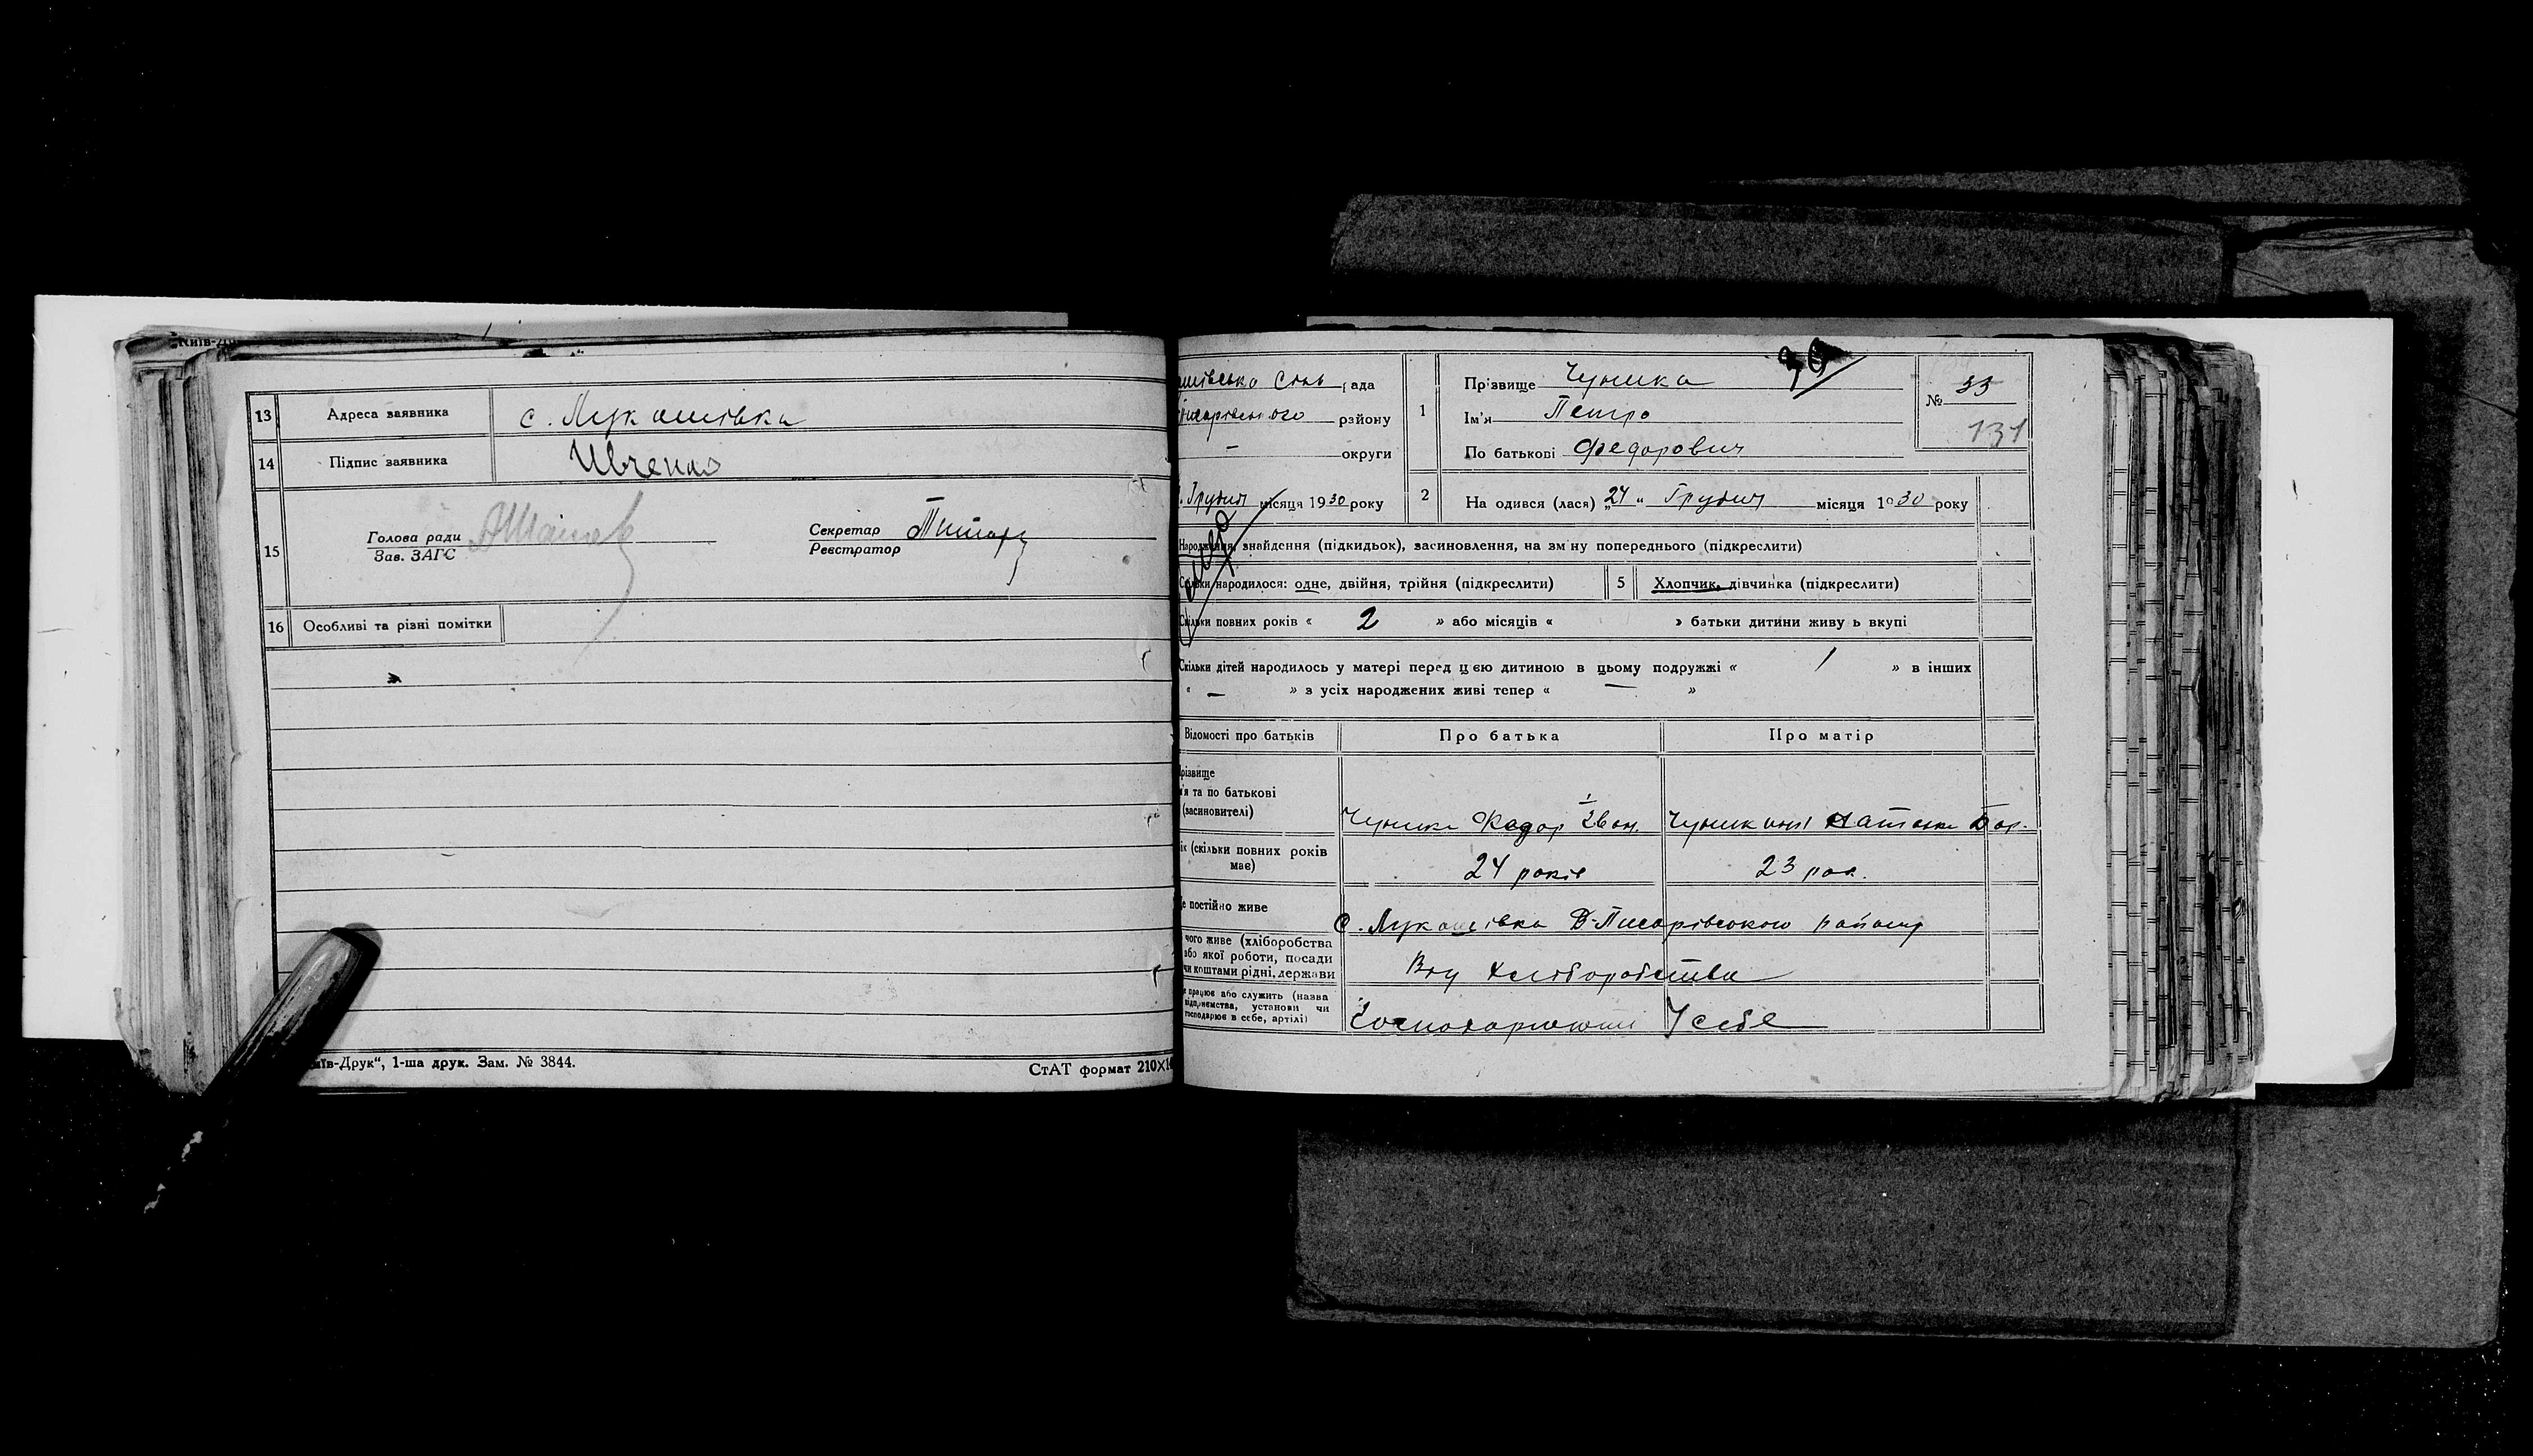 13 Адреса заявника с. Лукашівка
14 Підпис заявника Ивченко
15 Голова ради
Зав. ЗАГС
Секретар
Реєстратор
16 Особливі та різні помітки
їв-Друк“, 1-ша друк. Зам. № 3844.
СтАТ формат 210×14
рада
району
округи
Грудня місяця 1930 року
1 Прізвище
Ім'я Петро
По батькові Федорович
№ 33
131
2 На одився (лася) „24“ Грудня місяця 1930 року
Народження, знайдення (підкидьок), засиновлення, на зм ну попереднього (підкреслити)
Скільки народилося: одне, двійня, трійня (підкреслити)
5 Хлопчик, дівчинка (підкреслити)
Скільки повних років « 2 » або місяців « » батьки дитини живу ь вкупі
Скільки дітей народилось у матері перед цією дитиною в цьому подружжі « 1 » в інших
« — » з усіх народжених живі тепер « — »
Відомості про батьків Про батька Про матір
різвище
'я та по батькові
(засиновителі)
Федор Іван.
ік (скільки повних років
має)
24 років 23 рок.
е постійно живе
с. Лукашівка В-Писарівського району
чого живе (хліборобства
або якої роботи, посади
чи коштами рідні, держави
Від хліборобства
е працює або служить (назва
підприємства, установи чи
господарює в себе, артілі)
Господарюють У себе